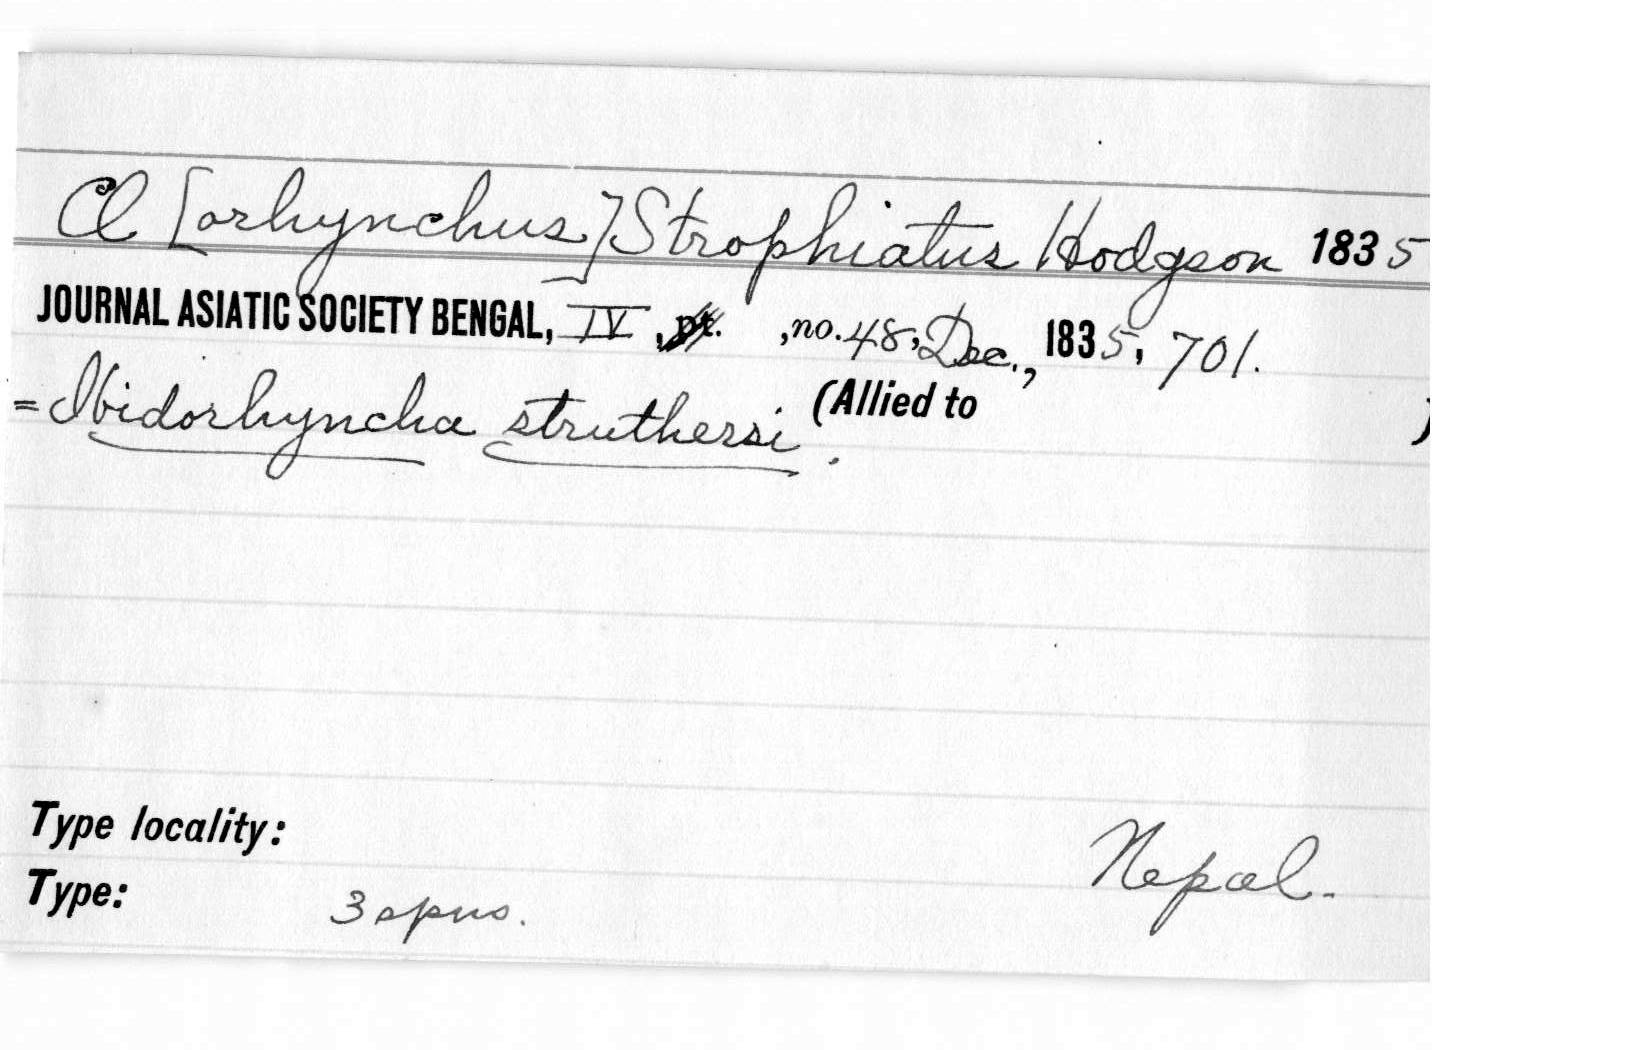 Cl[orhynchus] Strophiatus Hodgson 1835
JOURNAL ASIATIC SOCIETY BENGAL, IV, pt. , no. 48, Dec., 1835, 701.
= Ibidorhyncha struthersi. (Allied to )
Type locality: Nepal.
Type: 3 spns.